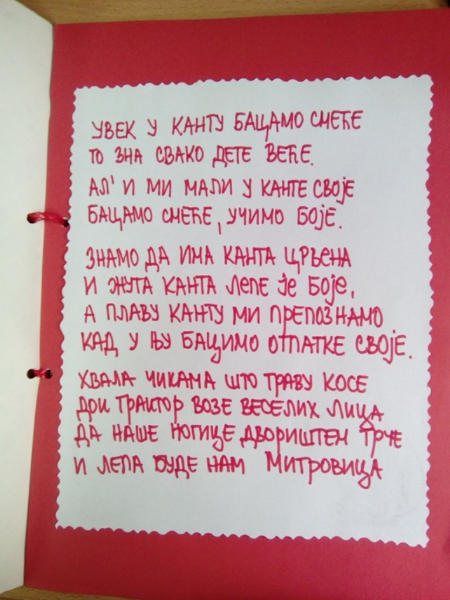 УВЕК У КАНТУ БАЦАМО СМЕЋЕ
ТО ЗНА СВАКО ДЕТЕ ВЕЋЕ.
АЛ' И МИ МАЛИ У КАНТЕ СВОЈЕ
БАЦАМО СМЕЋЕ, УЧИМО БОЈЕ.
ЗНАМО ДА ИМА КАНТА ЦРВЕНА
И ЖУТА КАНТА ЛЕПЕ ЈЕ БОЈЕ,
А ПЛАВУ КАНТУ МИ ПРЕПОЗНАМО
КАД У ЊУ БАЦИМО ОТПАТКЕ СВОЈЕ.
ХВАЛА ЧИКАМА ШТО ТРАВУ КОСЕ
ДОК ТРАКТОР ВОЗЕ ВЕСЕЛИХ ЛИЦА
ДА НАШЕ НОГИЦЕ ДВОРИШТЕМ ТРЧЕ
И ЛЕПА БУДЕ НАМ МИТРОВИЦА